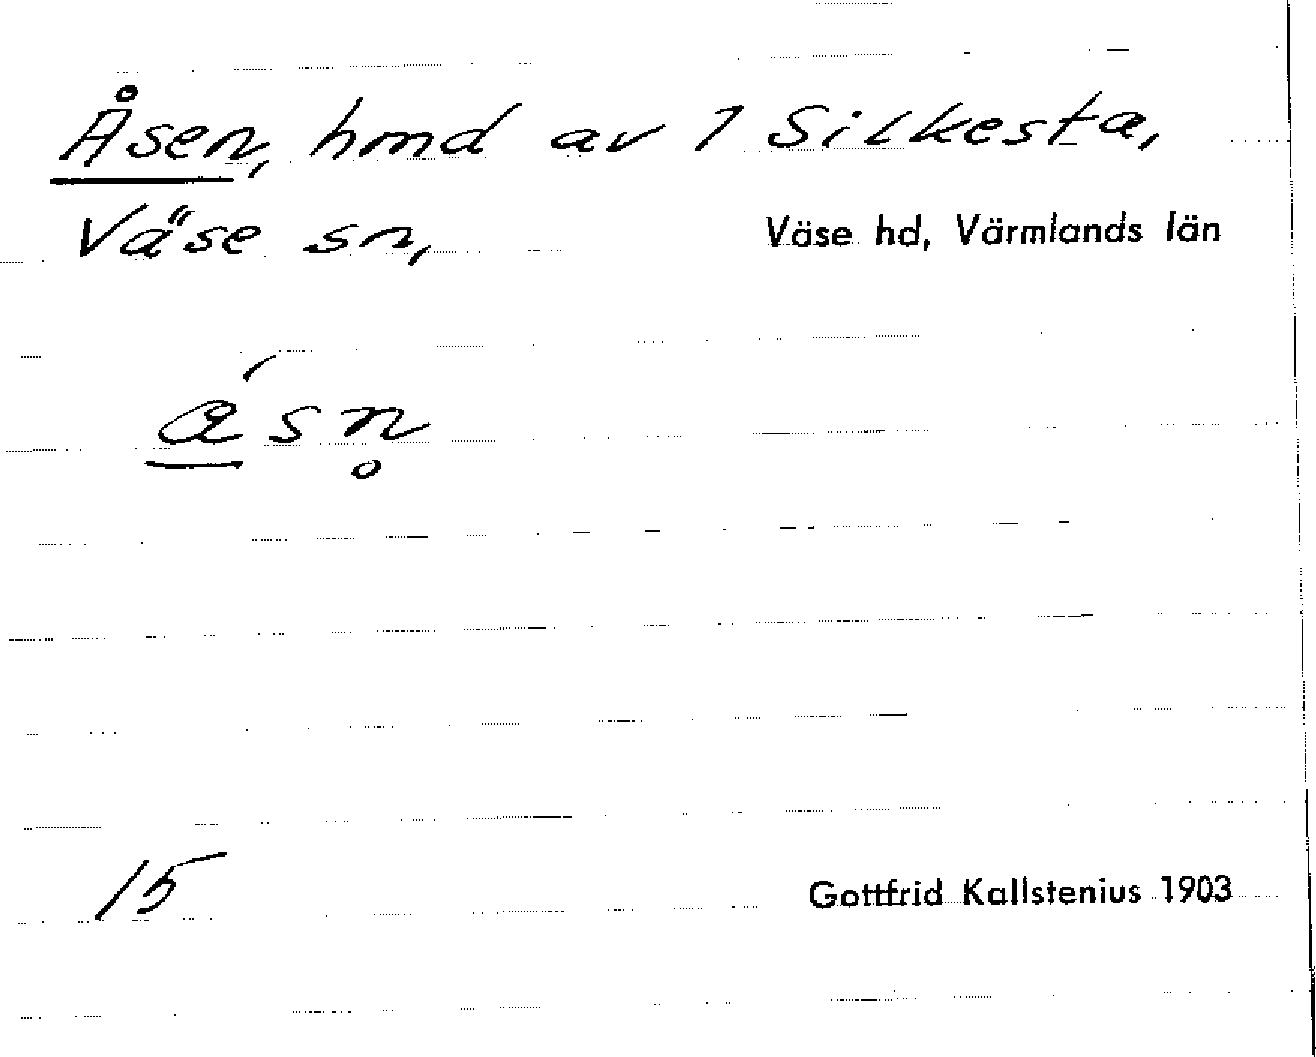 Åsen, hmd av 1 Silkesta,
Väse sn, Väse hd, Värmlands län
a̲´sn̥
15 Gottfrid Kallstenius 1903